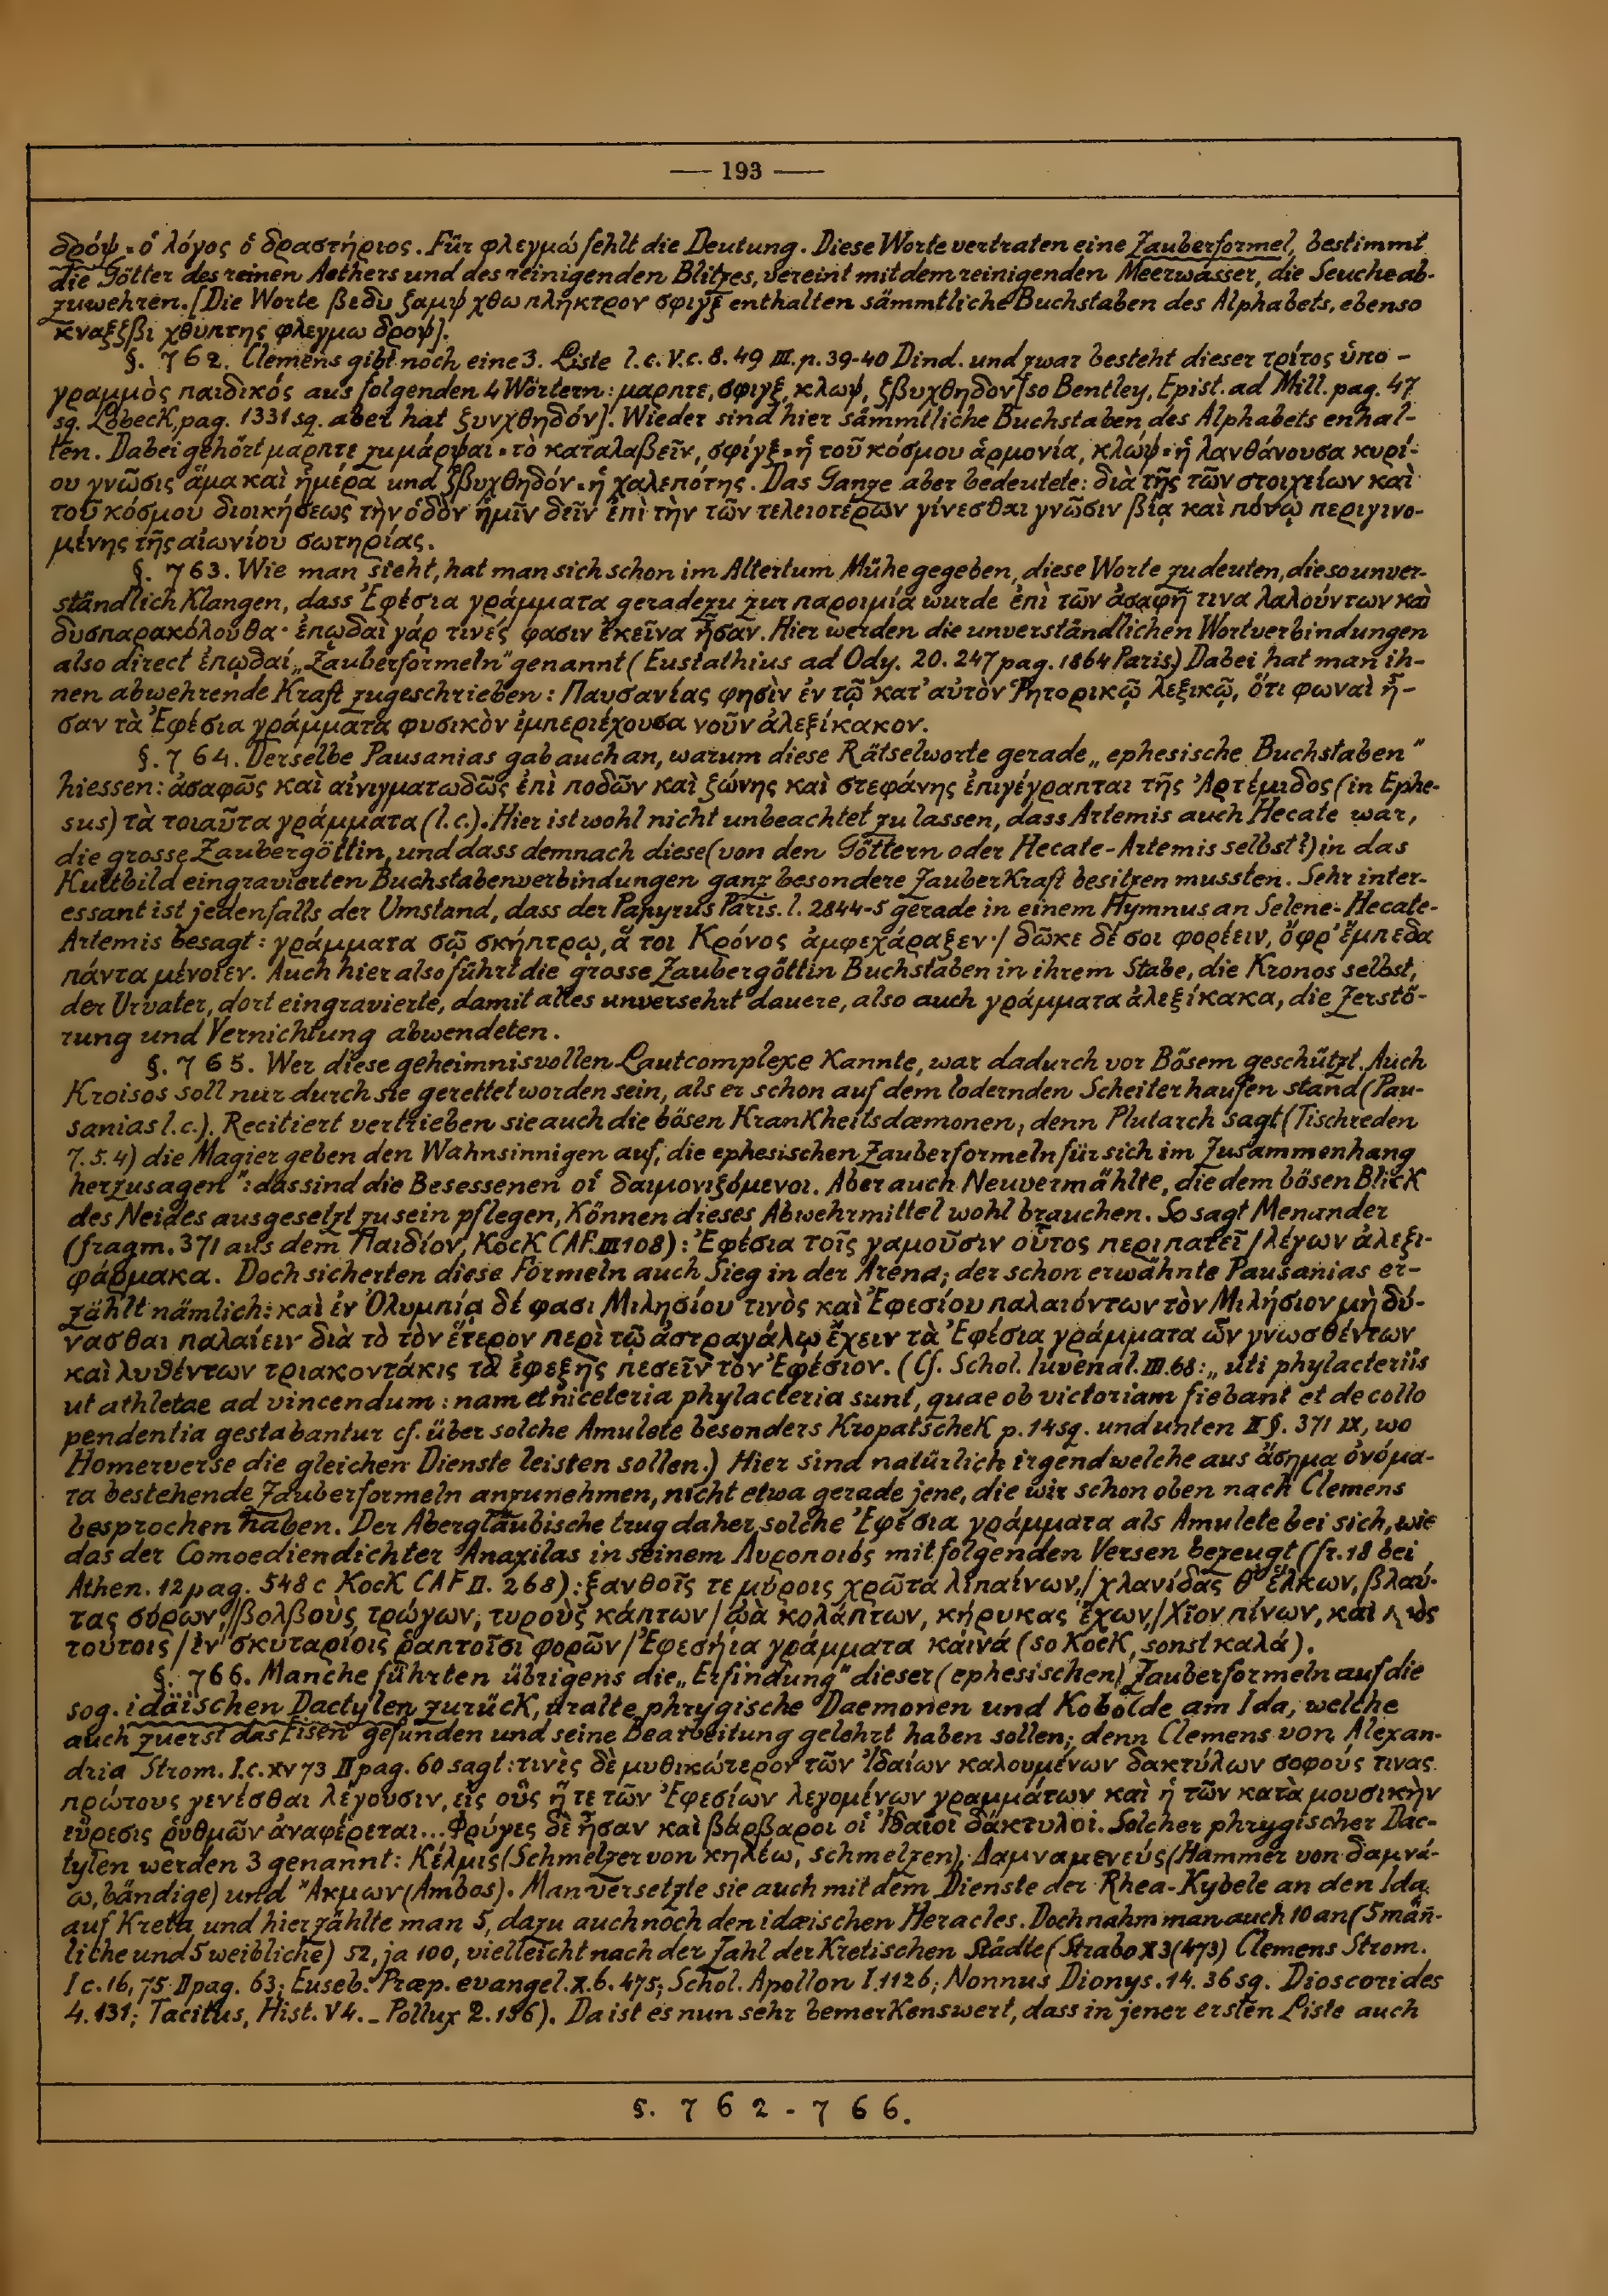 — 193 —
δρόψ = ὁ λόγος ὁ δραστήριος. Für φλεγμώ fehlt die Deutung. Diese Worte vertraten eine Zauberformel, bestimmt
die Götter des reinen Aethers und des reinigenden Blitzes, vereint mit dem reinigenden Meerwasser, die Seuche ab-
zuwehren. [Die Worte βεδυ ζαμψ χθω πλῆκτρον σφιγξ enthalten sämmtliche Buchstaben des Alphabets, ebenso
κναξζβι χθυπτης φλεγμω δροψ].
§. 762. Clemens gibt noch eine 3. Liste l. c. V. c. 8. 49 III. p. 39-40 Dind. und zwar besteht dieser τρίτος ὑπο-
γραμμὸς παιδικός aus folgenden 4 Wörtern: μαρπτε, σφιγξ, κλωψ, ζβυχθηδον [so Bentley, Epist. ad Mill. pag. 47
sq. Lobeck, pag. 1331 sq. aber hat ξυνχθηδόν]. Wieder sind hier sämmtliche Buchstaben des Alphabets enhal-
ten. Dabei gehört μαρπτε zu μάρψαι = τὸ καταλαβεῖν, σφίγξ = ἡ τοῦ κόσμου ἁρμονία, κλώψ = ἡ λανθάνουσα κυρί-
ου γνῶσις ἅμα καὶ ἡμέρα und ζβυχθηδόν = ἡ χαλεπότης. Das Ganze aber bedeutete: διὰ τῆς τῶν στοιχείων καὶ
τοῦ κόσμου διοικήσεως τὴν ὁδὸν ἡμῖν δεῖν ἐπὶ τὴν τῶν τελειοτέρων γίνεσθαι γνῶσιν βίᾳ καὶ πόνῳ περιγινο-
μένης τῆς αἰωνίου σωτηρίας.
§. 763. Wie man sieht, hat man sich schon im Altertum Mühe gegeben, diese Worte zu deuten, die so unver-
ständlich klangen, dass Ἐφέσια γράμματα geradezu zur παροιμία wurde ἐπὶ τῶν ἀσαφῆ τινα λαλούντων καὶ
δυσπαρακόλουθα· ἐπῳδαὶ γάρ τινές φασιν ἐκεῖνα ἦσαν. Hier werden die unverständlichen Wortverbindungen
also direct ἐπῳδαί, „Zauberformeln" genannt (Eustathius ad Ody. 20. 247 pag. 1864 Paris.) Dabei hat man ih-
nen abwehrende Kraft zugeschrieben: Παυσανίας φησὶν ἐν τῷ κατ' αὐτὸν Ῥητορικῷ λεξικῷ, ὅτι φωναὶ ἦ-
σαν τὰ Ἐφέσια γράμματα φυσικὸν ἐμπεριέχουσα νοῦν ἀλεξίκακον.
§. 764. Derselbe Pausanias gab auch an, warum diese Rätselworte gerade „ephesische Buchstaben"
hiessen: ἀσαφῶς καὶ αἰνιγματωδῶς ἐπὶ ποδῶν καὶ ζώνης καὶ στεφάνης ἐπιγέγραπται τῆς Ἀρτέμιδος (in Ephe-
sus) τὰ τοιαῦτα γράμματα (l. c.). Hier ist wohl nicht unbeachtet zu lassen, dass Artemis auch Hecate war,
die grosse Zaubergöttin, und dass demnach diese (von den Göttern oder Hecate-Artemis selbst?) in das
Kultbild eingravierten Buchstabenverbindungen ganz besondere Zauberkraft besitzen mussten. Sehr inter-
essant ist jedenfalls der Umstand, dass der Papyrus Paris. l. 2844-5 gerade in einem Hymnus an Selene-Hecate-
Artemis besagt: γράμματα σῷ σκήπτρῳ, ἅ τοι Κρόνος ἀμφεχάραξεν·/ δῶκε δέ σοι φορέειν, ὄφρ' ἔμπεδα
πάντα μένοιεν. Auch hier also führt die grosse Zaubergöttin Buchstaben in ihrem Stabe, die Kronos selbst,
der Urvater, dort eingravierte, damit alles unversehrt dauere, also auch γράμματα ἀλεξίκακα, die Zerstö-
rung und Vernichtung abwendeten.
§. 765. Wer diese geheimnisvollen Lautcomplexe kannte, war dadurch vor Bösem geschützt. Auch
Kroisos soll nur durch sie gerettet worden sein, als er schon auf dem lodernden Scheiterhaufen stand (Pau-
sanias l. c.). Recitiert vertrieben sie auch die bösen Krankheitsdæmonen; denn Plutarch sagt (Tischreden
7. 5. 4) die Magier geben den Wahnsinnigen auf, die ephesischen Zauberformeln für sich im Zusammenhang
herzusagen": das sind die Besessenen οἱ δαιμονιζόμενοι. Aber auch Neuvermählte, die dem bösen Blick
des Neides ausgesetzt zu sein pflegen, können dieses Abwehrmittel wohl brauchen. So sagt Menander
(fragm. 371 aus dem Παιδίον, Kock CAF. III 108): Ἐφέσια τοῖς γαμοῦσιν οὗτος περιπατεῖ / λέγων ἀλεξι-
φάρμακα. Doch sicherten diese Formeln auch Sieg in der Arena; der schon erwähnte Pausanias er-
zählt nämlich: καὶ ἐν Ὀλυμπίᾳ δέ φασι Μιλησίου τινὸς καὶ Ἐφεσίου παλαιόντων τὸν Μιλήσιον μὴ δύ-
νασθαι παλαίειν διὰ τὸ τὸν ἕτερον περὶ τῷ ἀστραγάλῳ ἔχειν τὰ Ἐφέσια γράμματα ὧν γνωσθέντων
καὶ λυθέντων τριακοντάκις τὸ ἐφεξῆς πεσεῖν τὸν Ἐφέσιον. (Cf. Schol. Iuvenal. III. 68: „uti phylacteriis
ut athletae ad vincendum: nam et niceteria phylacteria sunt, quae ob victoriam fiebant et de collo
pendentia gestabantur cf. über solche Amulete besonders Kropatschek p. 14 sq. und unten II §. 371 IX, wo
Homerverse die gleichen Dienste leisten sollen.) Hier sind natürlich irgendwelche aus ἄσημα ὀνόμα-
τα bestehende Zauberformeln anzunehmen, nicht etwa gerade jene, die wir schon oben nach Clemens
besprochen haben. Der Abergläubische trug daher solche Ἐφέσια γράμματα als Amulete bei sich, wie
das der Comoediendichter Anaxilas in seinem Λυροποιός mit folgenden Versen bezeugt (fr. 18 bei
Athen. 12 pag. 548 c Kock CAF II. 268): ξανθοῖς τε μύροις χρῶτα λιπαίνων,/ χλανίδας θ' ἕλκων, βλαύ-
τας σύρων,/ βολβοὺς τρώγων, τυροὺς κάπτων / ᾠὰ κολάπτων, κήρυκας ἔχων,/ Χῖον πίνων, καὶ
τούτοις / ἐν σκυταρίοις ῥαπτοῖσι φορῶν / Ἐφεσήια γράμματα καινά (so Kock, sonst καλά).
§. 766. Manche führten übrigens die „Erfindung" dieser (ephesischen) Zauberformeln auf die
sog. idäischen Dactylen zurück, uralte phrygische Daemonen und Kobolde am Ida, welche
auch zuerst das Eisen gefunden und seine Bearbeitung gelehrt haben sollen; denn Clemens von Alexan-
dria Strom. I. c. XV 73 II pag. 60 sagt: τινὲς δὲ μυθικώτερον τῶν Ἰδαίων καλουμένων δακτύλων σοφούς τινας
πρώτους γενέσθαι λέγουσιν, εἰς οὓς ἥ τε τῶν Ἐφεσίων λεγομένων γραμμάτων καὶ ἡ τῶν κατὰ μουσικὴν
εὕρεσις ῥυθμῶν ἀναφέρεται... Φρύγες δὲ ἦσαν καὶ βάρβαροι οἱ Ἰδαῖοι δάκτυλοι. Solcher phrygischer Dac-
tylen werden 3 genannt: Κέλμις (Schmelzer von κηλέω, schmelzen), Δαμναμενεύς (Hammer von δαμνά-
ω, bändige) und Ἄκμων (Ambos). Man versetzte sie auch mit dem Dienste der Rhea-Kybele an den Ida
auf Kreta und hier zählte man 5, dazu auch noch den idæischen Heracles. Doch nahm man auch 10 an (5 män̄-
liche und 5 weibliche) 52, ja 100, vielleicht nach der Zahl der kretischen Städte (Strabo X 3 (473) Clemens Strom.
I c. 16, 75 II pag. 63; Euseb. Præp. evangel. X. 6. 475; Schol. Apollon I. 1126; Nonnus Dionys. 14. 36 sg. Dioscorides
4. 131; Tacitus, Hist. V 4. - Pollux 2. 156). Da ist es nun sehr bemerkenswert, dass in jener ersten Liste auch
§. 762-766.